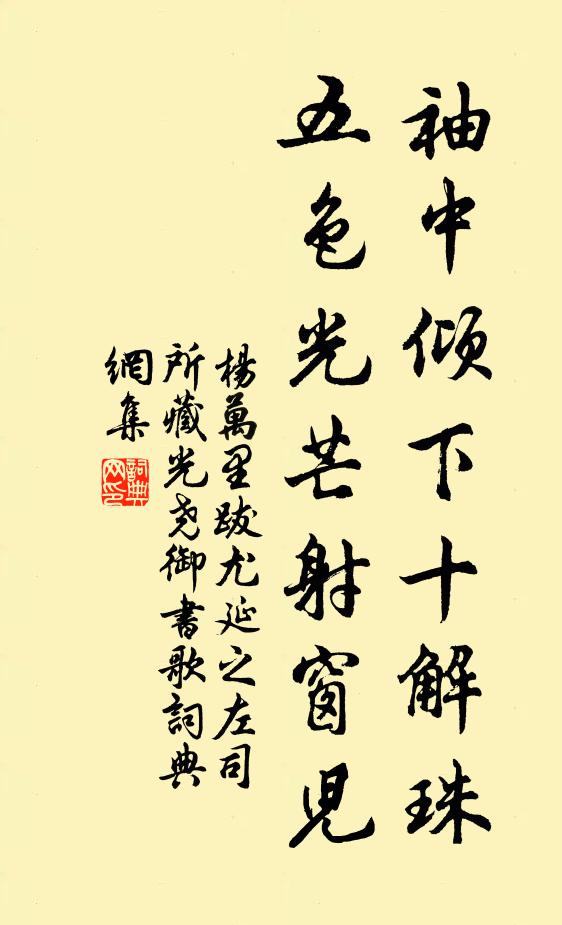 袖中倾下十解珠
五色光芒射窗児
楊萬里跋尤延之左司
所藏光尧御書歌詞典
網集
詞典
网印